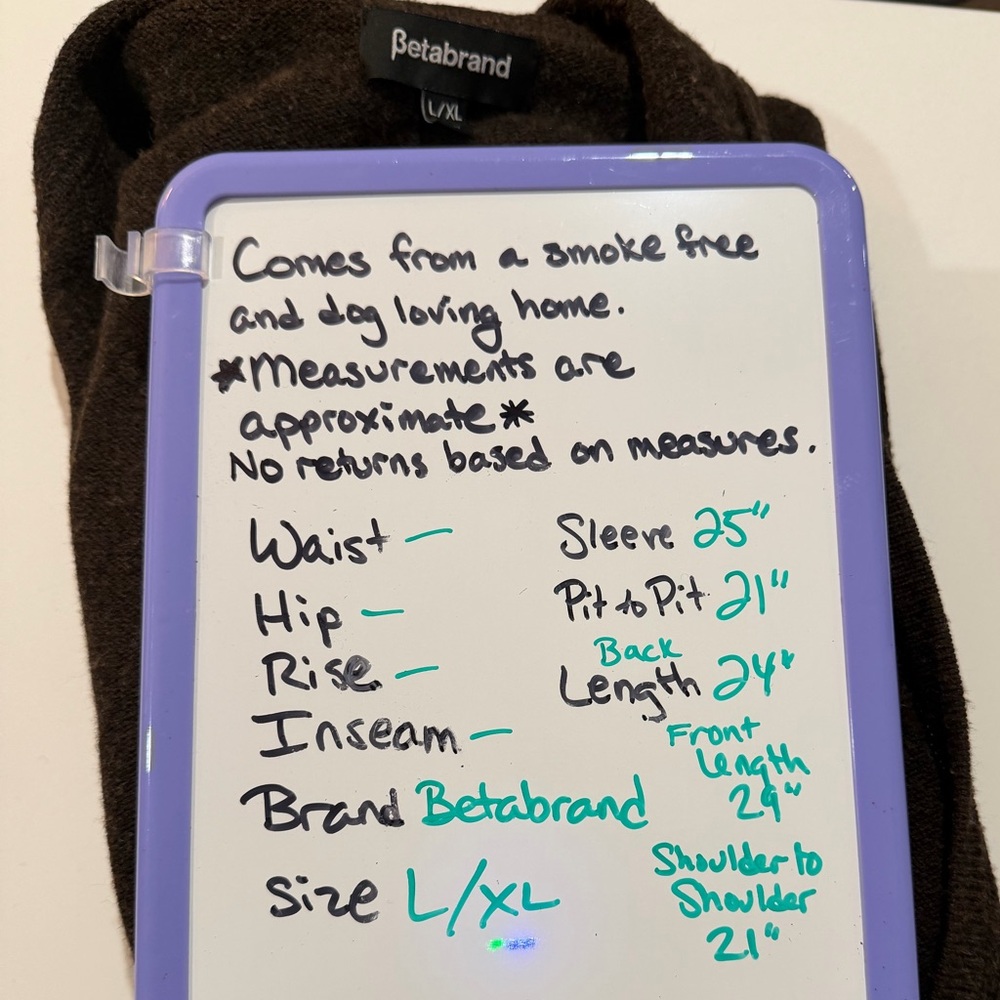 Betabrand
L/XL
Comes from a smoke free
and dog loving home.
*Measurements are
approximate*
No returns based on measures.
Waist —
Sleeve 25"
Hip —
Pit to Pit 21"
Rise —
Back
Length 24"
Inseam —
Front
Length
29"
Brand Betabrand
Size L/XL
Shoulder to
Shoulder
21"